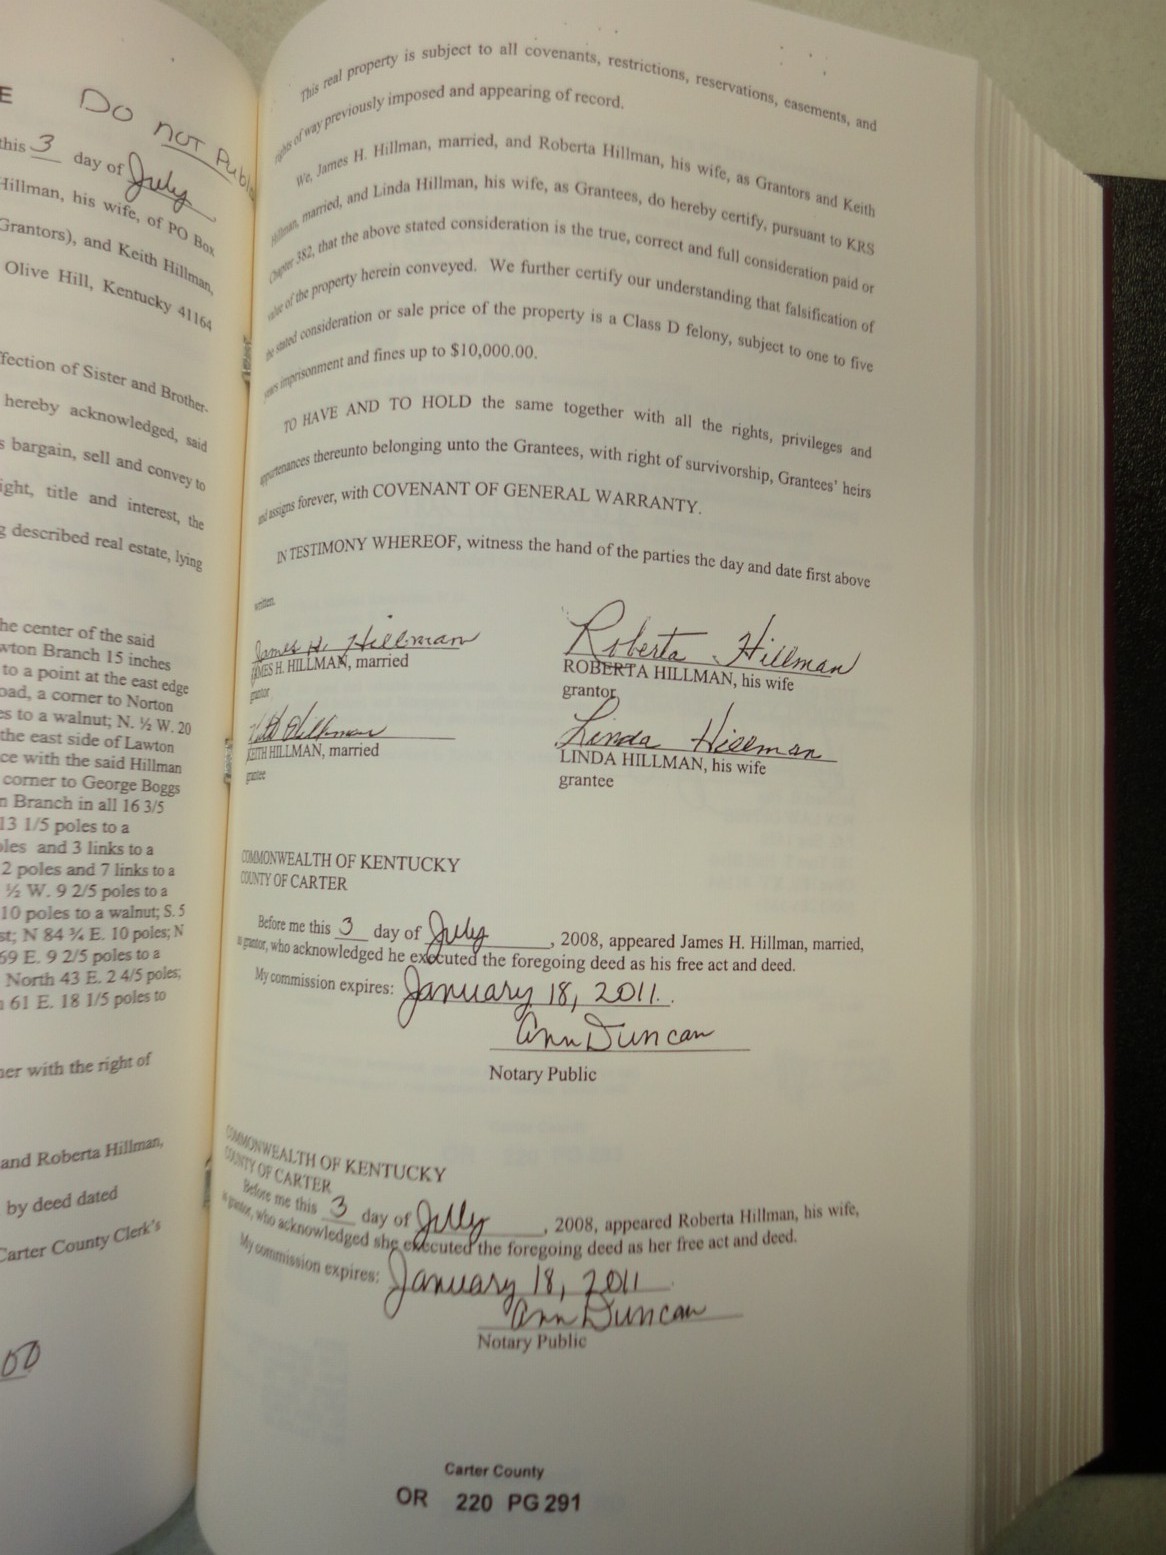 E Do not Publ
this 3 day of July
Hillman, his wife, of PO Box
Grantors), and Keith Hillman,
Olive Hill, Kentucky 41164
ffection of Sister and Brother-
hereby acknowledged, said
s bargain, sell and convey to
ight, title and interest, the
g described real estate, lying
he center of the said
wton Branch 15 inches
to a point at the east edge
oad, a corner to Norton
es to a walnut; N. ½ W. 20
the east side of Lawton
ce with the said Hillman
corner to George Boggs
n Branch in all 16 3/5
13 1/5 poles to a
oles and 3 links to a
2 poles and 7 links to a
½ W. 9 2/5 poles to a
10 poles to a walnut; S. 5
st; N 84 ¾ E. 10 poles; N
69 E. 9 2/5 poles to a
North 43 E. 2 4/5 poles;
61 E. 18 1/5 poles to
her with the right of
and Roberta Hillman,
by deed dated
Carter County Clerk's
00
This real property is subject to all covenants, restrictions, reservations, easements, and
rights of way previously imposed and appearing of record.
We, James H. Hillman, married, and Roberta Hillman, his wife, as Grantors and Keith
Hillman, married, and Linda Hillman, his wife, as Grantees, do hereby certify, pursuant to KRS
Chapter 382, that the above stated consideration is the true, correct and full consideration paid or
value of the property herein conveyed. We further certify our understanding that falsification of
the stated consideration or sale price of the property is a Class D felony, subject to one to five
years imprisonment and fines up to $10,000.00.
TO HAVE AND TO HOLD the same together with all the rights, privileges and
appurtenances thereunto belonging unto the Grantees, with right of survivorship, Grantees' heirs
and assigns forever, with COVENANT OF GENERAL WARRANTY.
IN TESTIMONY WHEREOF, witness the hand of the parties the day and date first above
written.
James H. Hillman Roberta Hillman
JAMES H. HILLMAN, married ROBERTA HILLMAN, his wife
grantor grantor
Keith Hillman Linda Hillman
KEITH HILLMAN, married LINDA HILLMAN, his wife
grantee grantee
COMMONWEALTH OF KENTUCKY
COUNTY OF CARTER
Before me this 3 day of July, 2008, appeared James H. Hillman, married,
as grantor, who acknowledged he executed the foregoing deed as his free act and deed.
My commission expires: January 18, 2011.
Ann Duncan
Notary Public
COMMONWEALTH OF KENTUCKY
COUNTY OF CARTER
Before me this 3 day of July, 2008, appeared Roberta Hillman, his wife,
as grantor, who acknowledged she executed the foregoing deed as her free act and deed.
My commission expires: January 18, 2011
Ann Duncan
Notary Public
Carter County
OR 220 PG 291